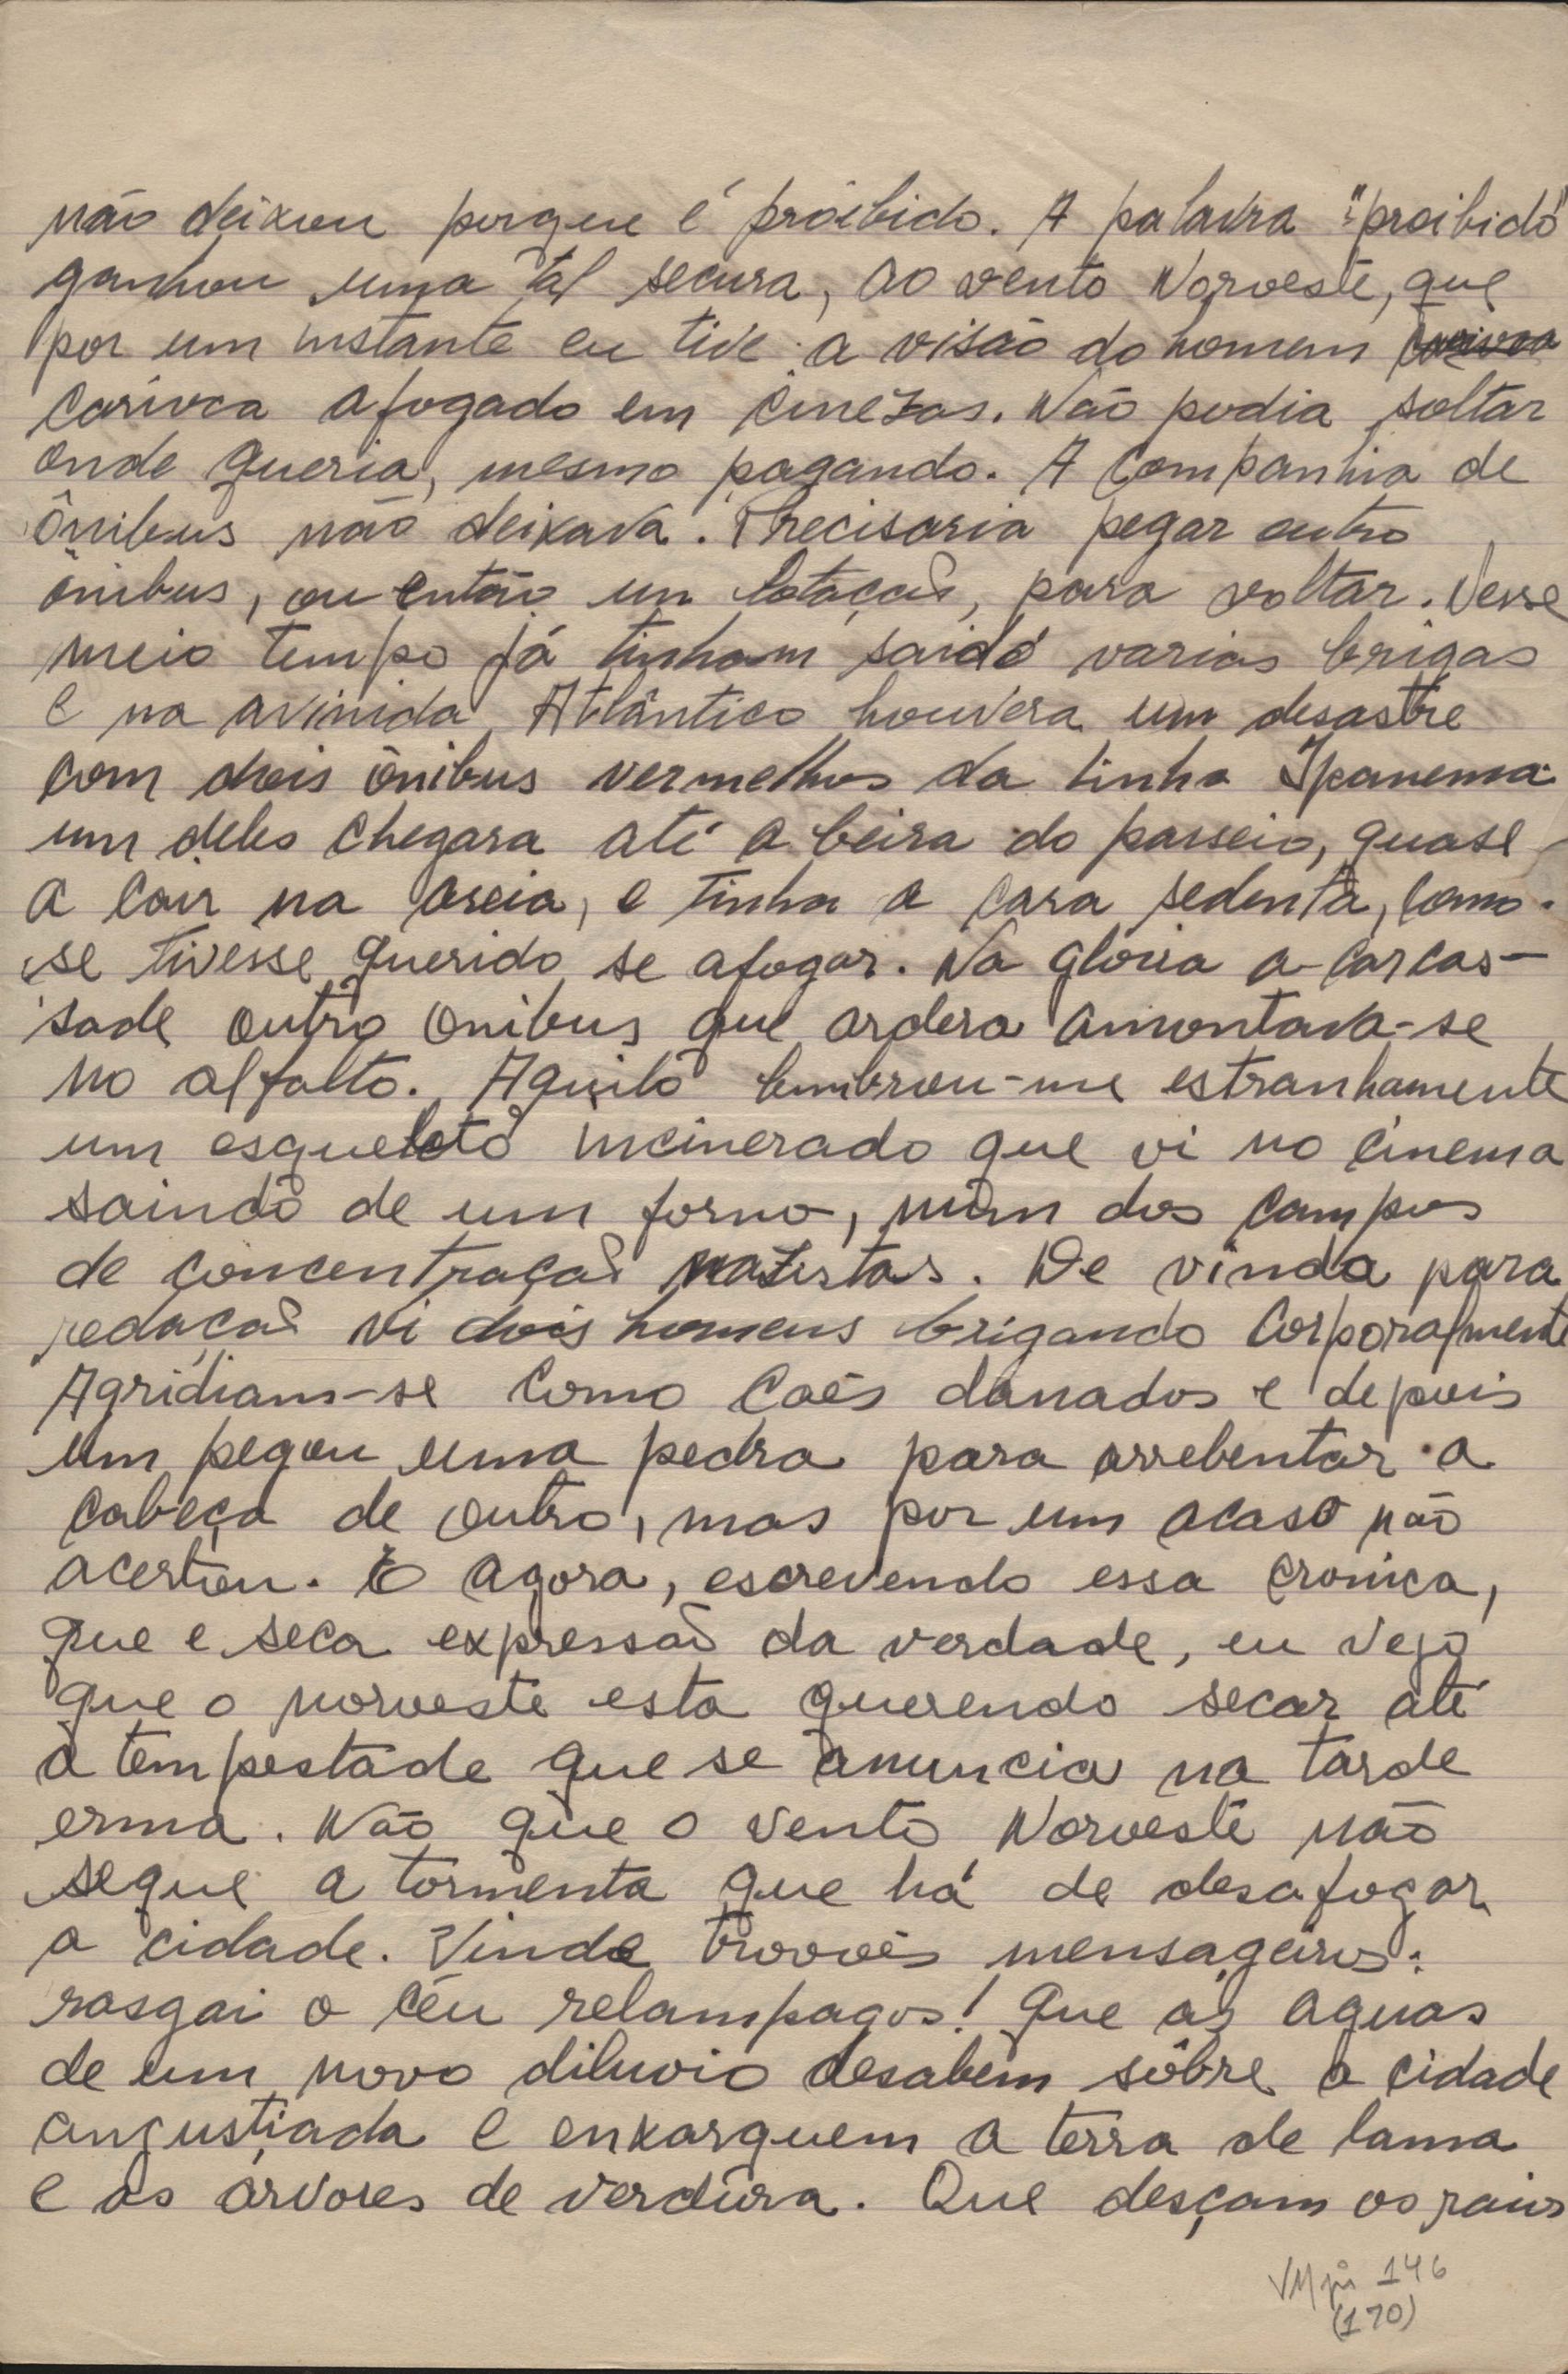 não deixou porque é proibido. A palavra "proibido"
ganhou uma tal secura, ao vento Noroeste, que
por um instante eu tive a visão do homem carioca
carioca afogado em cinezas. Não podia soltar
onde queria, mesmo pagando. A Companhia de
ônibus não deixava. Precisaria pegar outro
ônibus, ou então um lotação, para voltar. Nesse
meio tempo já tinham saido varias brigas
e na avinida Atlântico houvera um desastre
com dois ônibus vermelhos da linha Ipanema
um deles chegara até a beira do passeio, quase
a cair na areia, e tinha a cara sedenta, como
se tivesse querido se afogar. Na gloria a carcas-
sade outro onibus que ardera amontava-se
no alfalto. Aquilo lembrou-me estranhamente
um esqueleto incinerado que vi no cinema
saindo de um forno, num dos campos
de concentração nazistas. De vinda para
redação vi dois homens brigando corporalmente
Agridiam-se como cães danados e depois
um pegou uma pedra para arrebentar a
cabeça de outro, mas por um acaso não
acertou. E agora, escrevendo essa cronica,
que e seca expressão da verdade, eu vejo
que o noroeste esta querendo secar até
a tempestade que se anuncia na tarde
erma. Não que o vento Noroeste não
seque a tormenta que há de desafogar
a cidade. Vinde trovões mensageiros:
rasgai o céu relampagos! Que as aguas
de um novo diluvio desabem sôbre a cidade
angustiada e enxarquem a terra de lama
e as árvores de verdura. Que desçam os raios
VM pi 146
(170)